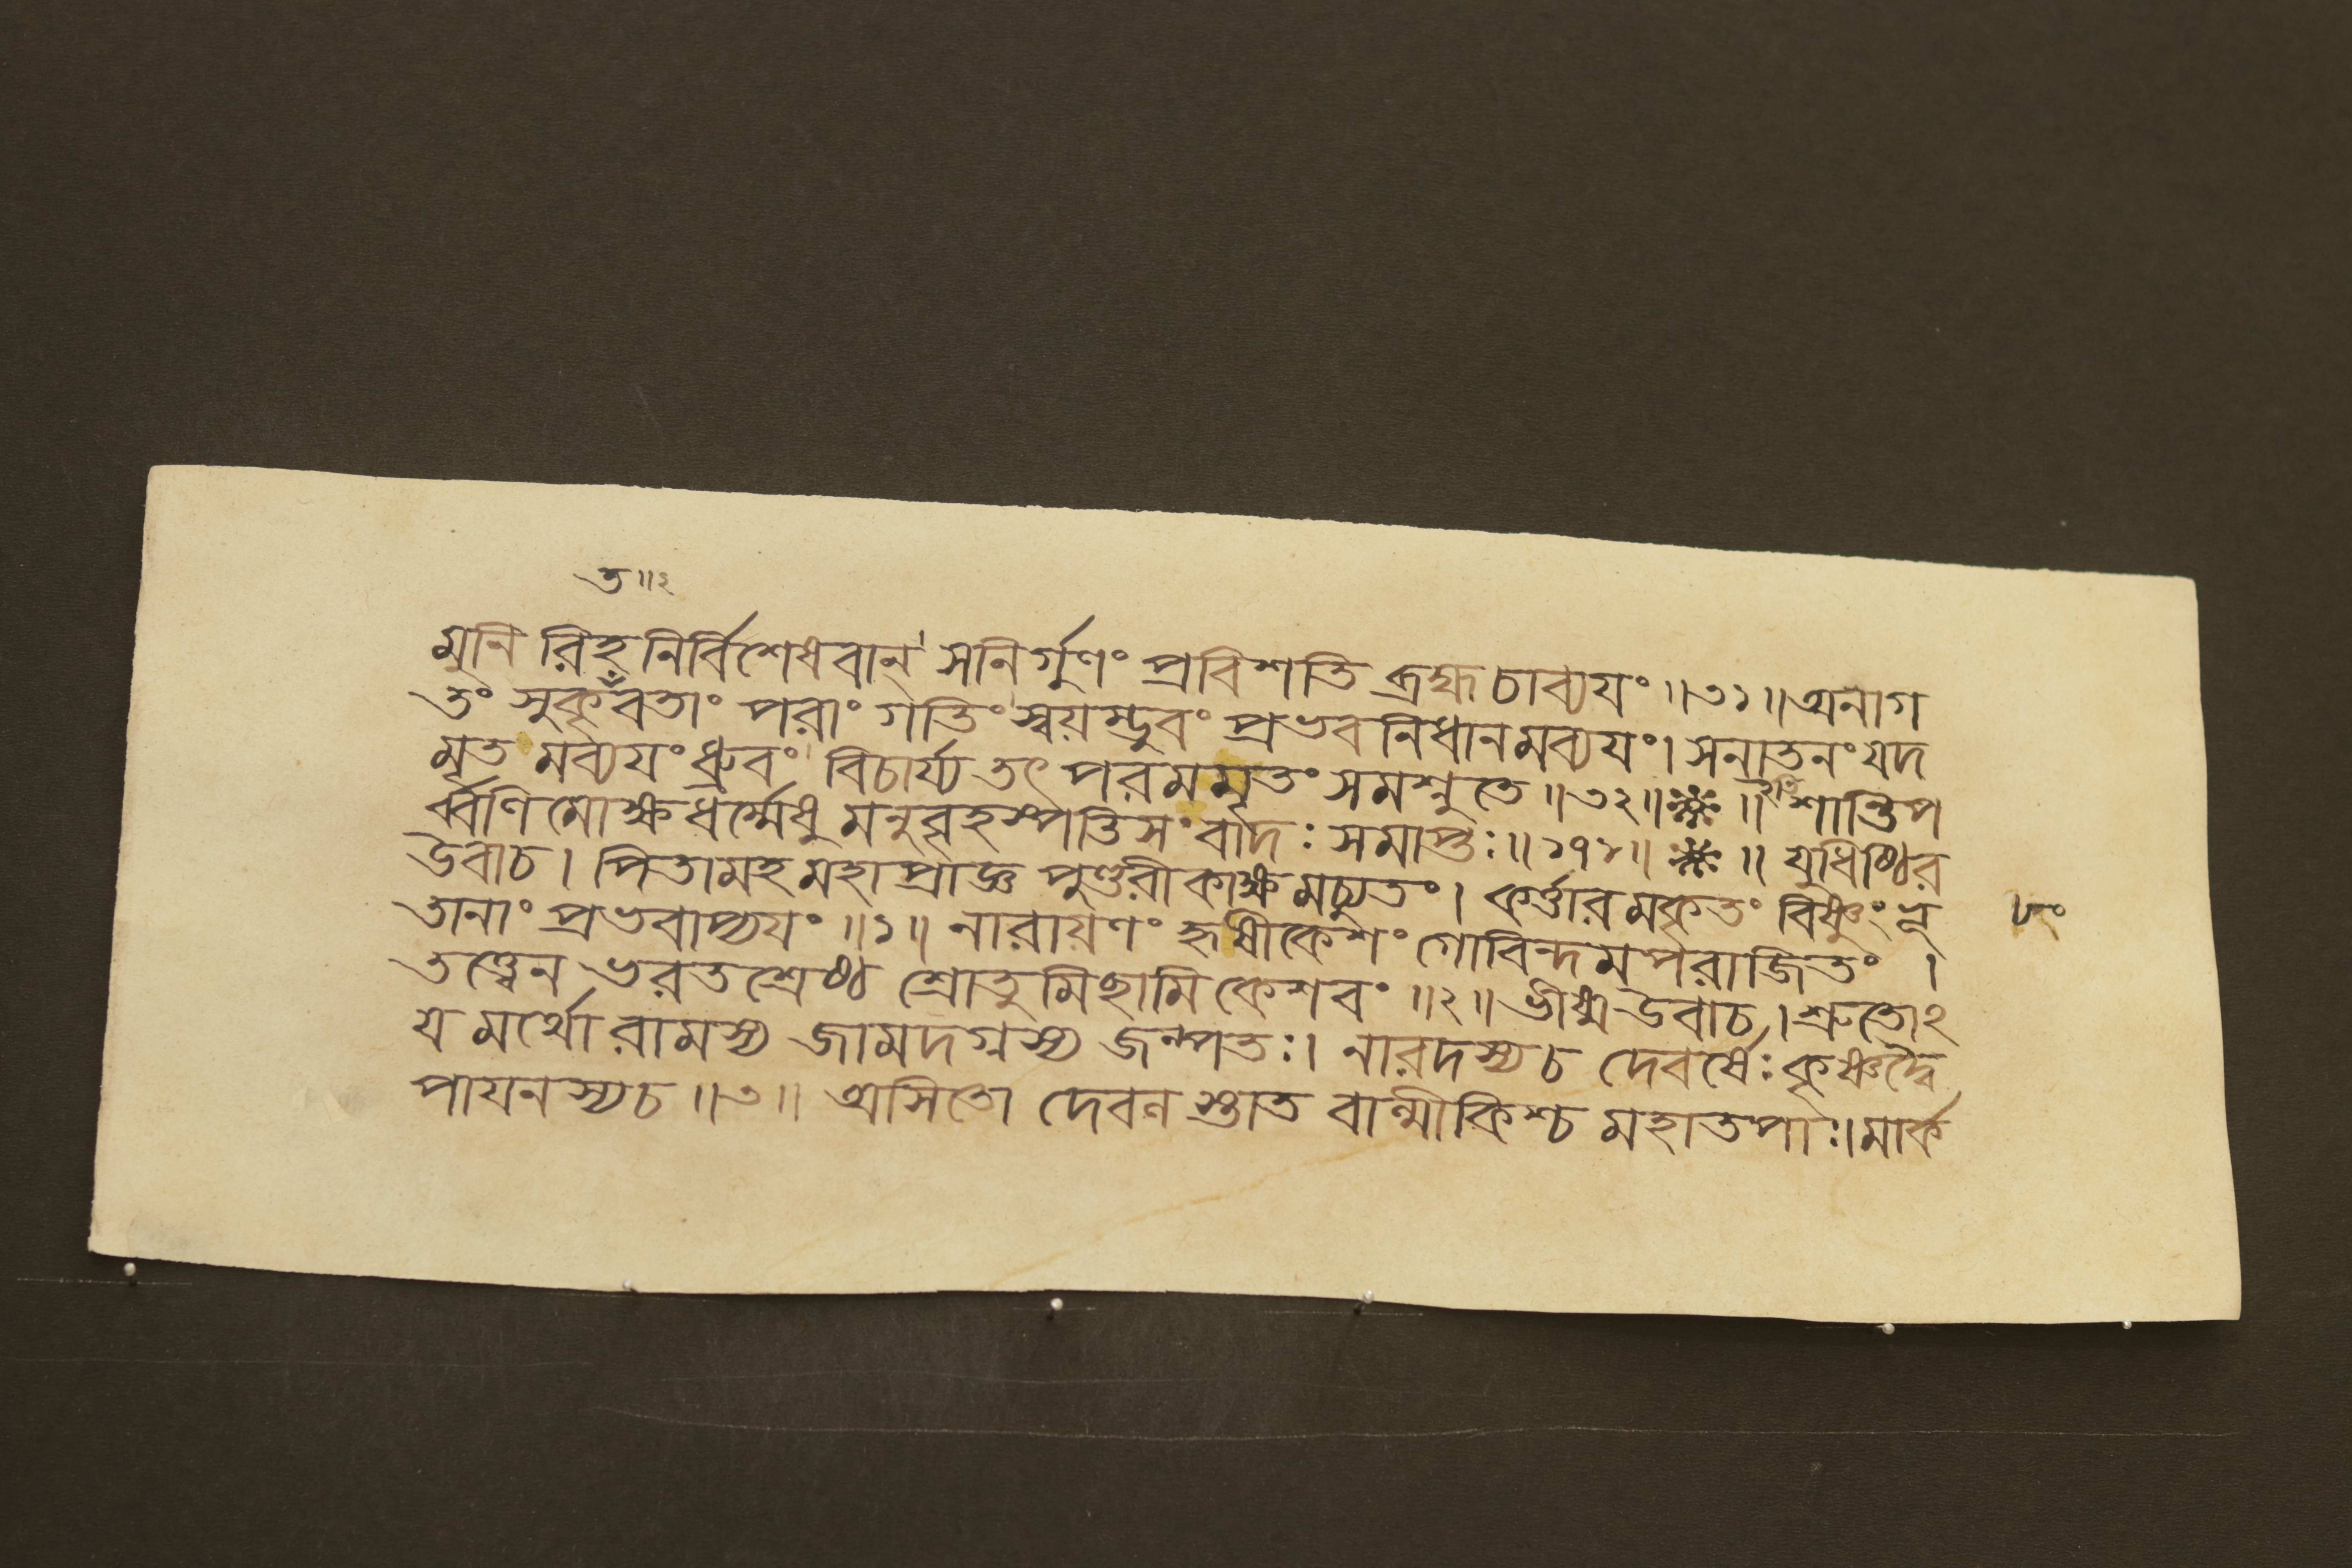 ত॥২
মুনি রিহ নির্বিশেষবান্ সনির্গুণং প্রবিশতি ব্রহ্মচাব্যয়ং ॥৩১॥ অনাগ
তং সুকৃঁবতাং পরাং গতিং স্বয়ম্ভুবং প্রভবনিধানমব্যয়ং। সনাতনং যদ
মৃত মব্যয়ং ধ্রুবং বিচার্য্য তৎ পরমমৃতং সমশ্নুতে ॥৩২॥ ※ ॥ ইতি শান্তিপ
র্ব্বণি মোক্ষধর্ম্মেষু মনুবৃহস্পতিসংবাদঃ সমাপ্তঃ॥১৭৮॥ ※ ॥ যুধিষ্ঠির
উবাচ। পিতামহ মহাপ্রাজ্ঞ পুণ্ডরীকাক্ষমচ্যুতং। কর্ত্তারমকৃতং বিষ্ণুং ভূ
তানাং প্রভবাপ্যয়ং ॥১॥ নারায়ণং হৃষীকেশং গোবিন্দমপরাজিতং ।
তত্ত্বেন ভরতশ্রেষ্ঠ শ্রোতুমিছামি কেশবং ॥২॥ ভীষ্ম উবাচ। শ্রুতোঽ
য মর্থো রামস্য জামদগ্নস্য জল্পতঃ। নারদস্য চ দেবর্ষেঃ কৃষ্ণদ্বৈ
পায়নস্য চ ॥৩॥ অসিতো দেবল স্তাত বাল্মীকিশ্চ মহাতপাঃ। মার্ক